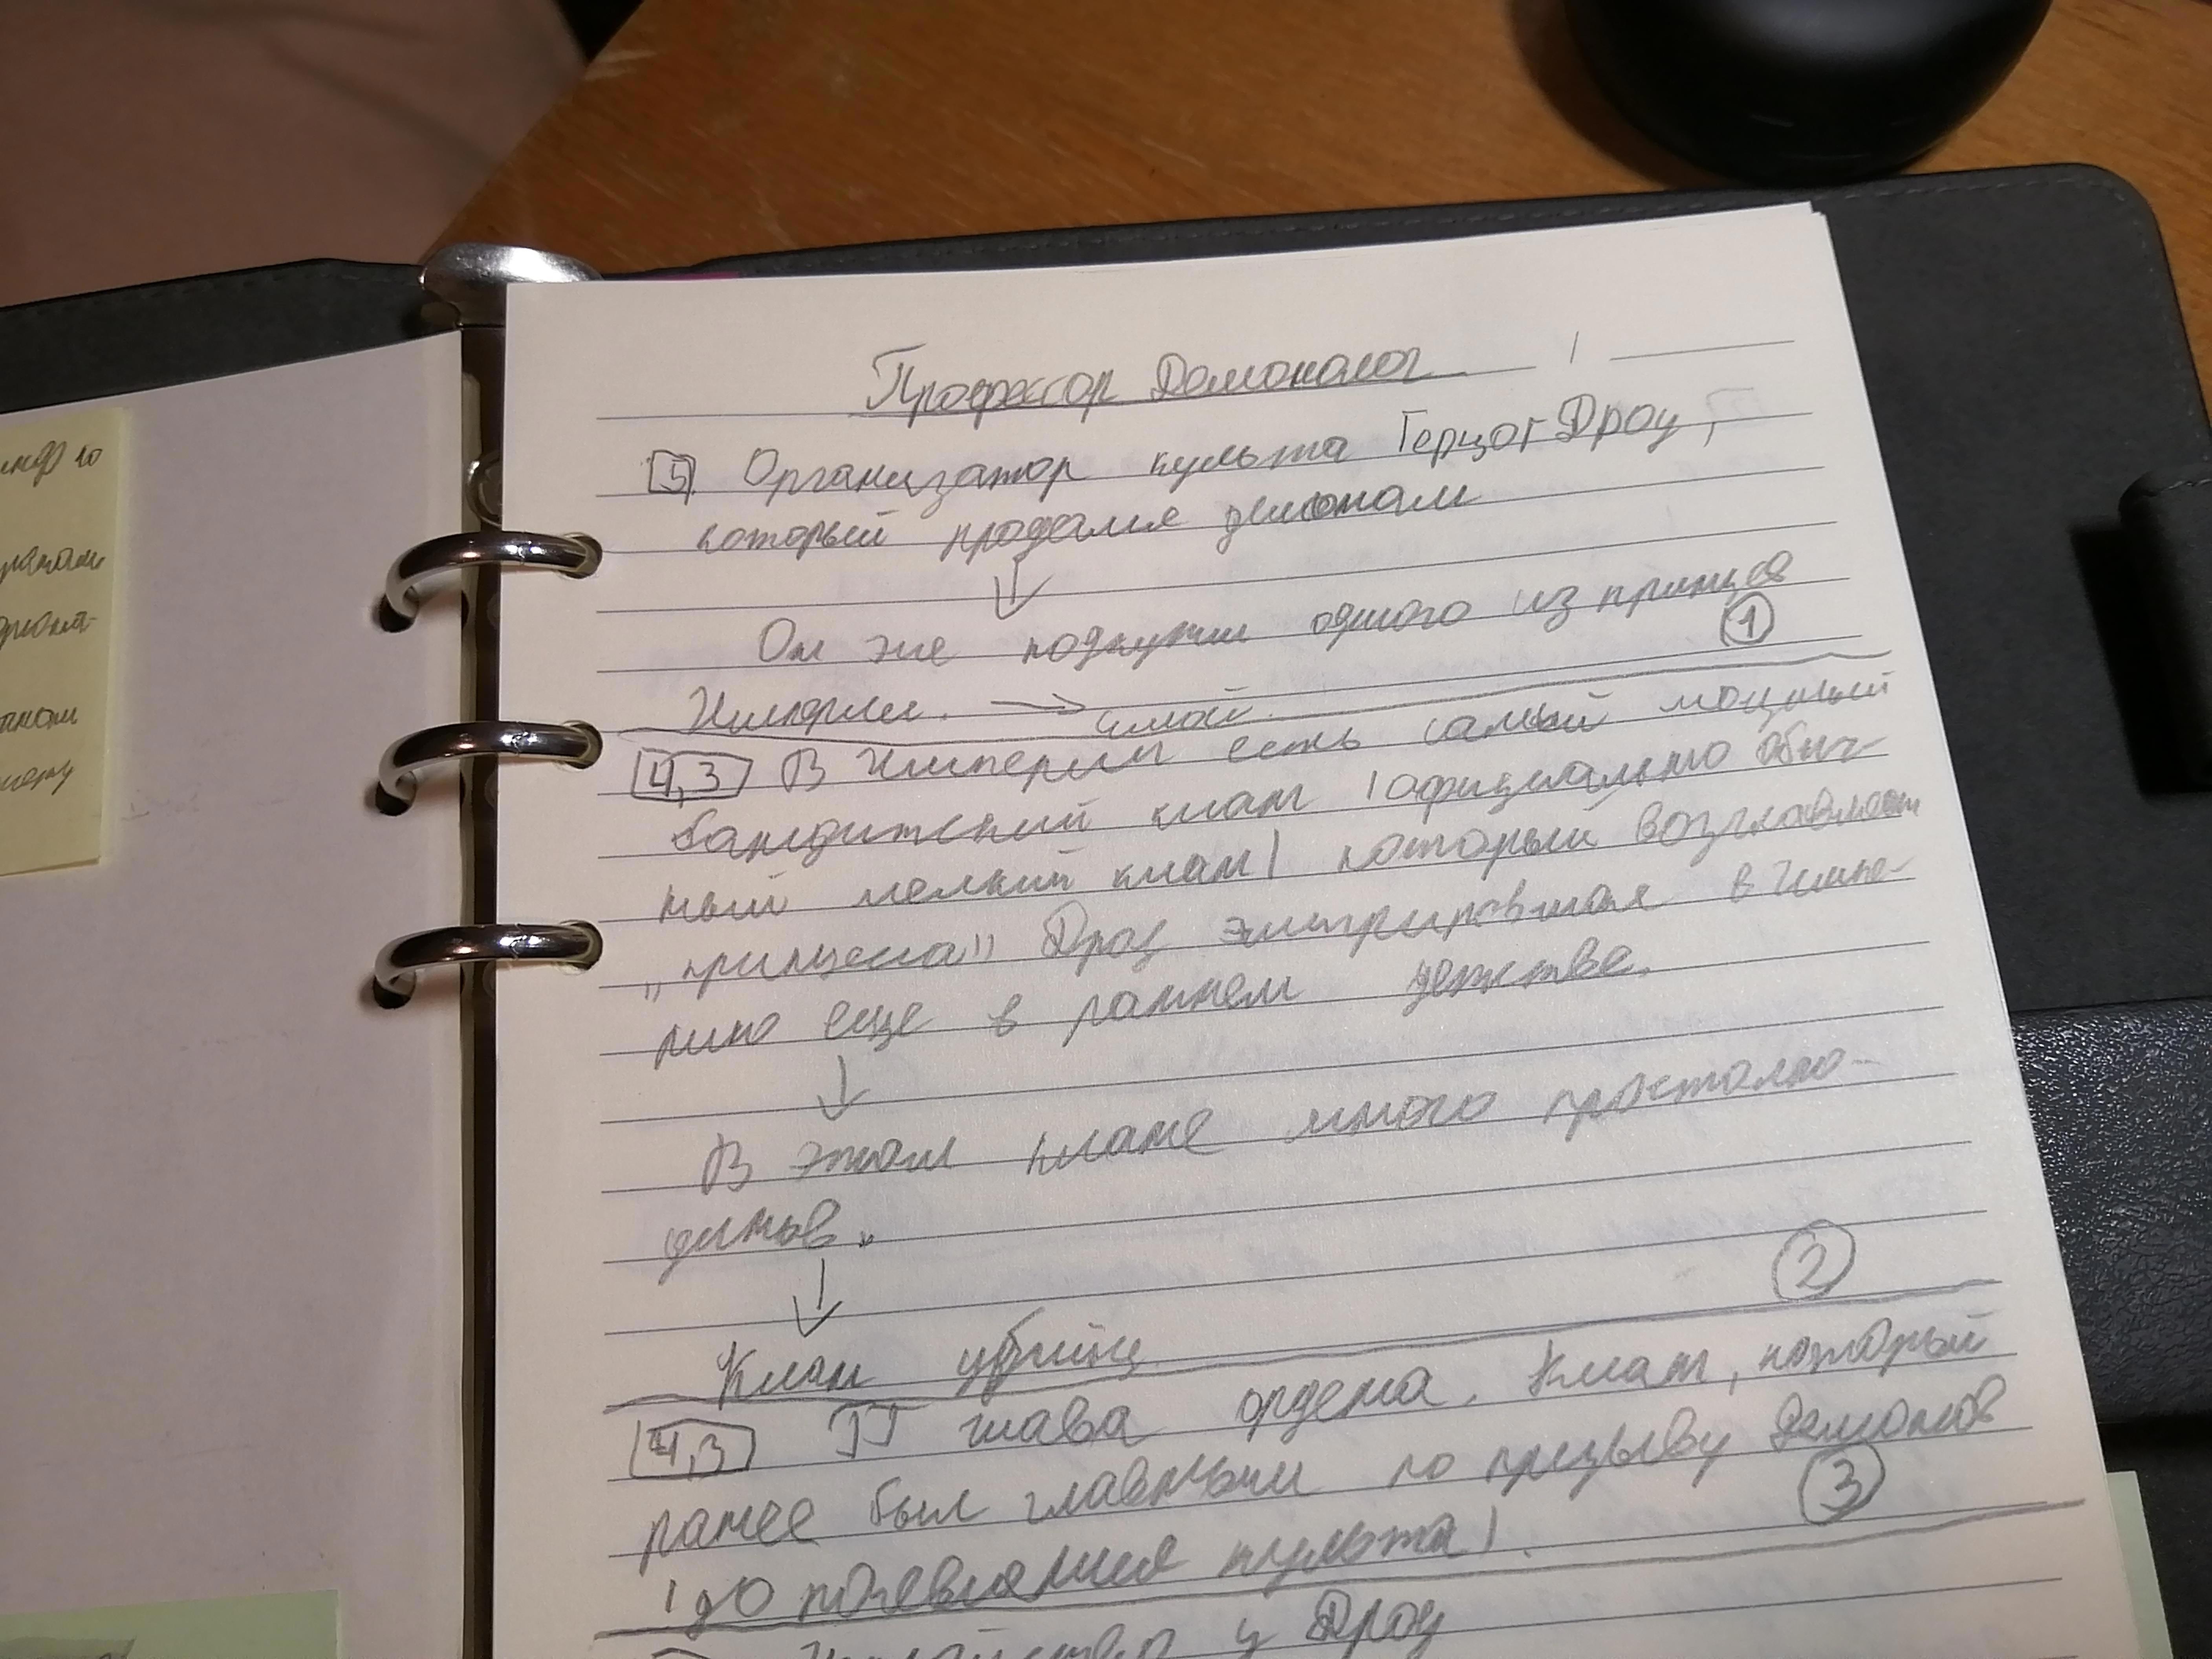 инф ю
Профессор Демоналог
5. Организатор культа Герцог Дроу,
который продался демонам
Он же подкупил одного из принцев
①
Империи. → Слай.
4,3 В Империи есть самый мощный
бандитский клан (официально обыч-
ный мелкий клан) который возглавляет
"принцесса" Дроу эмигрировавшая в Импе-
рию еще в раннем детстве.
В этом клане много простолю-
динов.
②
Клан убийц
4,3 П глава ордена. Клан, который
ранее был главным по призыву демонов
③
(до появления культа).
у Дроу